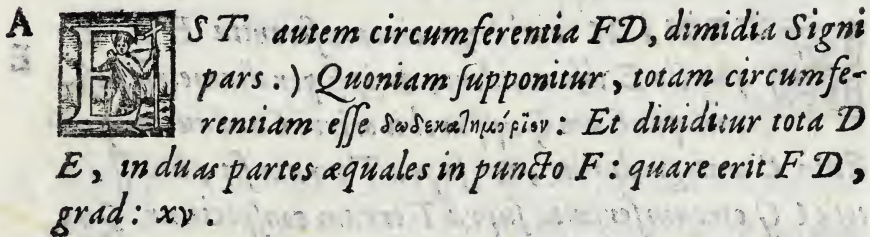 A EST autem circumferentia FD, dimidia Signi
pars.) Quoniam ſupponitur, totam circumfe-
rentiam eſſe δωδεκαλημόριον: Et diuiditur tota D
E, in duas partes æquales in puncto F: quare erit F D,
grad: xv.